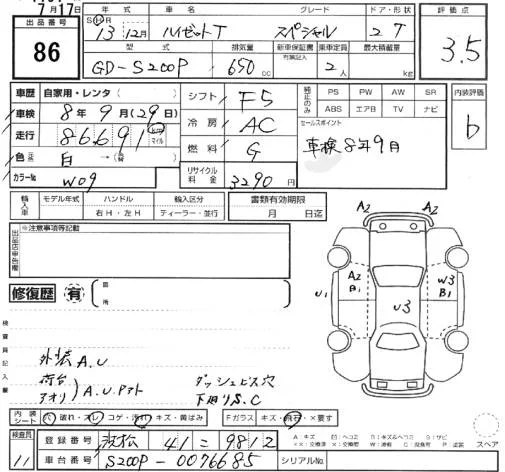 7月17日
出品番号 86
年式 車名 グレード ドア・形
SH R 13 12月 ハイゼットT スペシャル 2 T
型式 排気量 新車保証書 有無記入 乗車定員 最大積載量
GD-S200P 650 cc 2人 kg
評価点
3.5
車歴 自家用・レンタ
車検 8年9月(29日)
走行 86691
マイル
色 白 →
カラーNo W09
シフト F5
冷房 AC
燃料 G
リサイクル料金 3290円
純正のみ PS PW AW SR
ABS エアB TV ナビ
セールスポイント
車検8年9月
内装評価
b
輸入車 モデル年式 ハンドル 輸入区分
右H・左H ディーラー・並行
書類有効期限
月 日迄
※注意事項等記載
修復歴 有
箇所
検査員記入欄
外装A.U
荷台
アオリ A.U.
ダッシュビス穴
下廻りS.C
A2 A2
A2 B1
U1
U3
W3 B1
内装シート 穴 破れ・スレ・コゲ・汚れ・キズ・黄ばみ
Fガラス キズ・飛石・×要す
スペア
検査員 11
登録番号 浜松 41 = 9812
車台番号 S200P-0076685
シリアルNo.